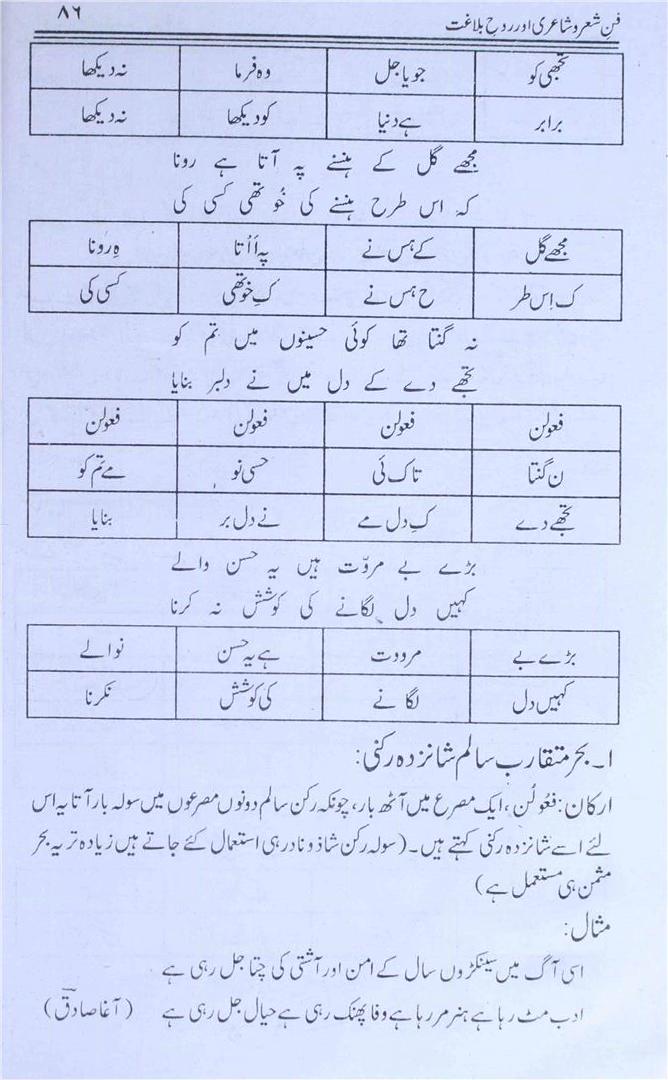 فنِ شعر و شاعری اور روحِ بلاغت ۸۶
تجھی کو جو یا جل وہ فرما نہ دیکھا
برابر ہے دنیا کو دیکھا نہ دیکھا
مجھے گل کے ہنسنے پہ آتا ہے رونا
کہ اس طرح ہنسنے کی خُو تھی کسی کی
مجھے گل کے ہس نے پہ اَاتا ہِ رونا
ک اِس طر ح ہس نے کِ خو تھی کسی کی
نہ گنتا تھا کوئی حسینوں میں تم کو
تجھے دے کے دل میں نے دلبر بنایا
فعولن فعولن فعولن فعولن
ن گنتا تاک ئی حسی نو مے تم کو
تجھے دے کِ دل مے نے دل بر بنایا
بڑے بے مروّت ہیں یہ حسن والے
کہیں دل لگانے کی کوشش نہ کرنا
بڑے بے مرووت ہے یہ حسن نوالے
کہیں دل لگانے کی کوشش نکرنا
۱۔ بحر متقارب سالم شانزدہ رکنی:
ارکان: فعولُن، ایک مصرع میں آٹھ بار، چونکہ رکن سالم دونوں مصرعوں میں سولہ بار آتا یہ اس
لئے اسے شانزدہ رکنی کہتے ہیں۔ (سولہ رکن شاذ و نادر ہی استعمال کئے جاتے ہیں زیادہ تر یہ بحر
مثمن ہی مستعمل ہے)
مثال:
اسی آگ میں سینکڑوں سال کے امن اور آشتی کی چتا جل رہی ہے
ادب مٹ رہا ہے ہنر مر رہا ہے وفا پھنک رہی ہے حیا جل رہی ہے (آغا صادقؔ)